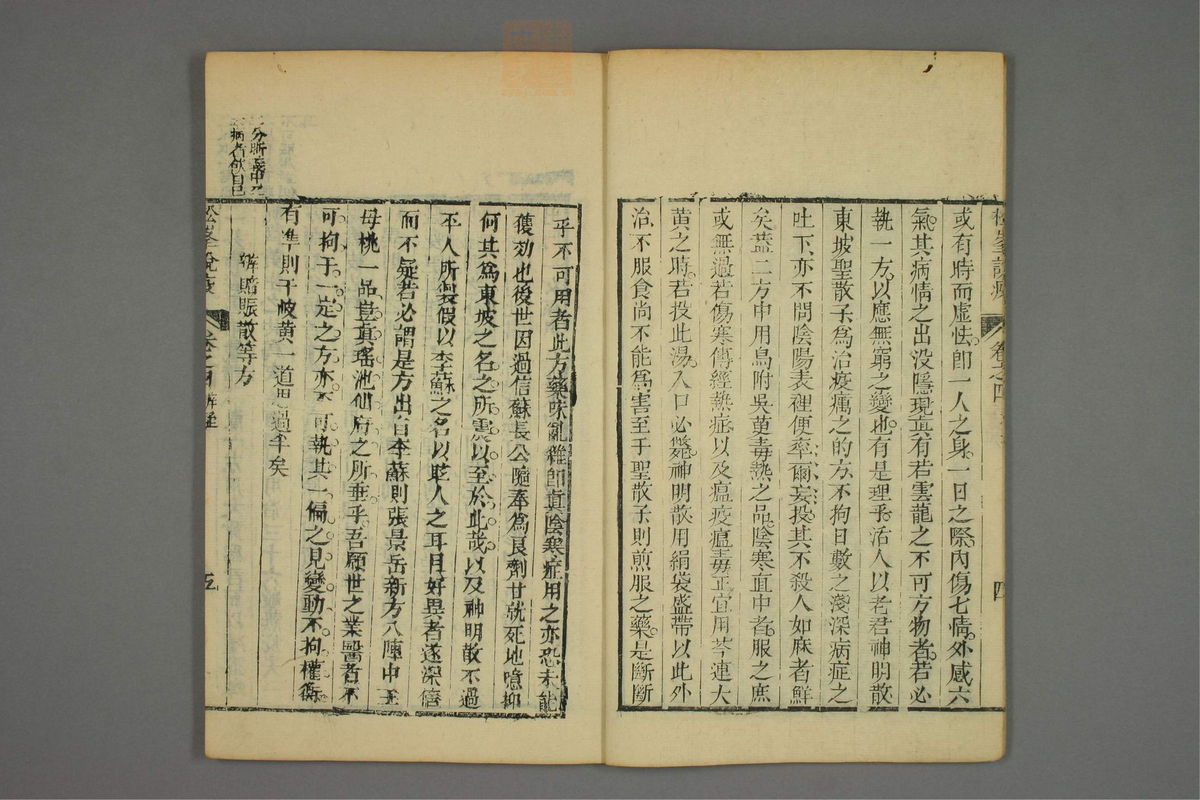 或有時而虛怯卽一人之身一日之際內傷七情外感六
氣其病情之出没隱現真有若雲龍之不可方物者若必
執一方以應無窮之變也有是理乎活人以老君神明散
東坡聖散子爲治疫癘之的方不拘日數之淺深病症之
吐下亦不問陰陽表裡便率爾妄投其不殺人如麻者鮮
矣蓋二方中用烏附吳萸毒熱之品陰寒直中者服之庶
或無過若傷寒傳經熱症以及瘟疫瘟毒正宜用芩連大
黃之時若投此湯入口必斃神明散用絹袋盛帶以此外
治不服食尚不能爲害至于聖散子則煎服之藥是斷斷
松峯說疫
卷之四
四
乎不可用者此方藥味亂雜卽真陰寒症用之亦恐未能
獲効也後世因過信蘇長公隨奉爲良劑甘就死地噫抑
何其爲東坡之名之所震以至於此哉以及神明散不過
平人所製假以李蘇之名以聳人之耳目好異者遂深信
而不疑若必謂是方出自李蘇則張景岳新方八陣中王
母桃一品豈真瑤池仙府之所垂乎吾願世之業醫者不
可拘于一定之方亦不可執其一偏之見變動不拘權衡
有準則于岐黃一道思過半矣
辨賠賬散等方
松峯說疫
卷之四
五